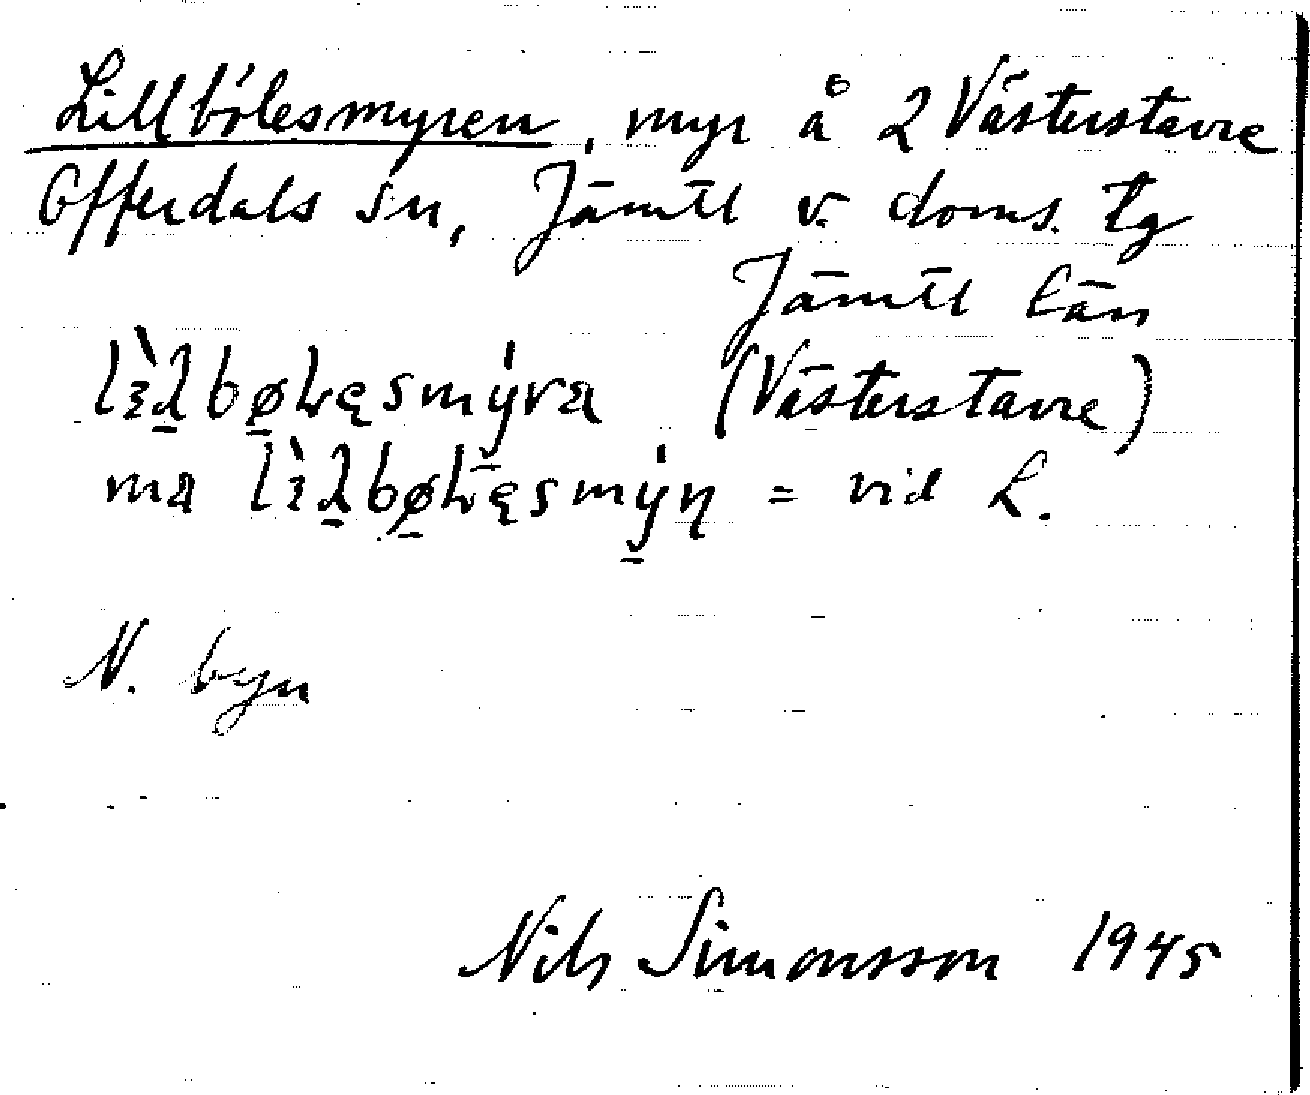 Lillbölesmyren, myr å 2 Västerstavre
Offerdals sn, Jämtl v. doms. tg
Jämtl län
(Västerstavre)
ma = vid L.
N. byn
Nils Simonsson 1945